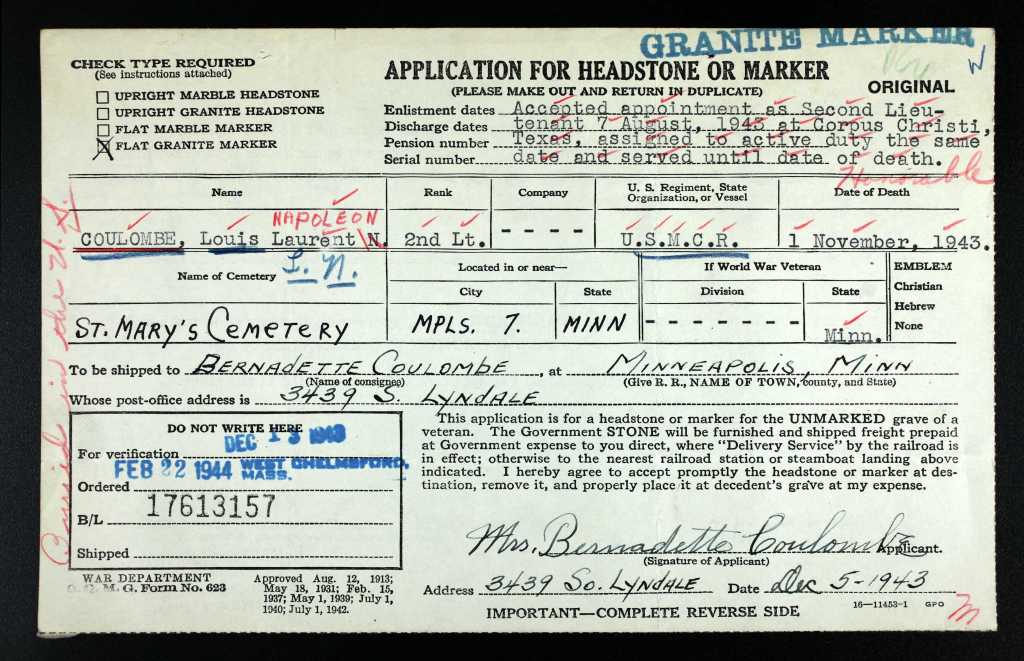 GRANITE MARKER
CHECK TYPE REQUIRED
(See instructions attached)
UPRIGHT MARBLE HEADSTONE
UPRIGHT GRANITE HEADSTONE
FLAT MARBLE MARKER
X FLAT GRANITE MARKER
APPLICATION FOR HEADSTONE OR MARKER
(PLEASE MAKE OUT AND RETURN IN DUPLICATE)
ORIGINAL
Enlistment dates Accepted appointment as Second Lieu-
Discharge dates tenant 7 August, 1943 at Corpus Christi,
Pension number Texas, assigned to active duty the same
Serial number date and served until date of death.
Honorable
Name
Rank
Company
U. S. Regiment, State
Organization, or Vessel
Date of Death
NAPOLEON
COULOMBE, Louis Laurent N. 2nd Lt. ---- U.S.M.C.R. 1 November, 1943.
L. N.
Name of Cemetery
Located in or near—
City
State
If World War Veteran
Division
State
EMBLEM
Christian
Hebrew
None
ST. MARY'S CEMETERY MPLS. 7. MINN ------- Minn.
To be shipped to BERNADETTE COULOMBE, at MINNEAPOLIS, MINN
(Name of consignee) (Give R. R., NAME OF TOWN, county, and State)
Whose post-office address is 3439 S. LYNDALE
DO NOT WRITE HERE
DEC 13 1943
For verification
FEB 22 1944 WEST CHELMSFORD, MASS.
Ordered
17613157
B/L
Shipped
This application is for a headstone or marker for the UNMARKED grave of a
veteran. The Government STONE will be furnished and shipped freight prepaid
at Government expense to you direct, where "Delivery Service" by the railroad is
in effect; otherwise to the nearest railroad station or steamboat landing above
indicated. I hereby agree to accept promptly the headstone or marker at des-
tination, remove it, and properly place it at decedent's grave at my expense.
Mrs. Bernadette Coulombe Applicant.
(Signature of Applicant)
Address 3439 So. LYNDALE Date Dec 5-1943
IMPORTANT—COMPLETE REVERSE SIDE
16—11453-1 GPO
M
WAR DEPARTMENT
O. Q. M. G. Form No. 623
Approved Aug. 12, 1913;
May 18, 1931; Feb. 15,
1937; May 1, 1939; July 1,
1940; July 1, 1942.
Buried in the U.S.